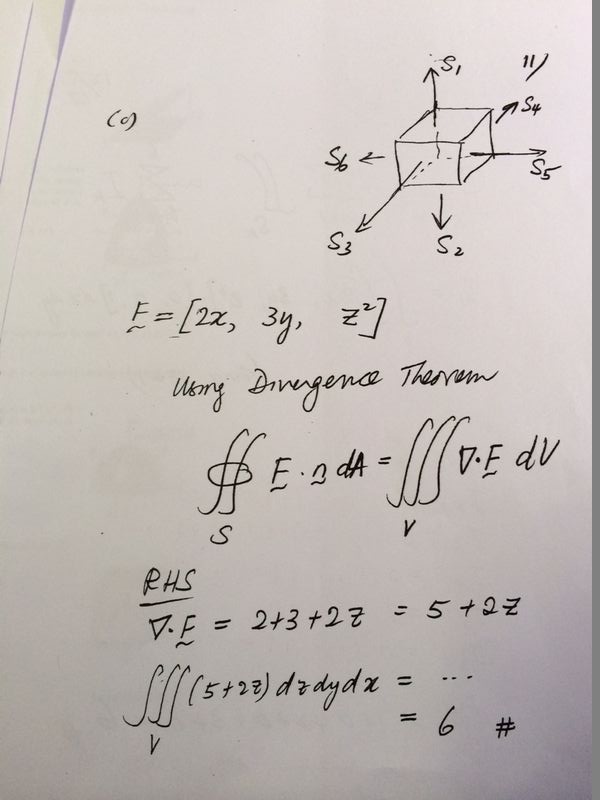 11)
(a)
S1
S4
S6
S5
S3
S2
F = [2x, 3y, z²]
Using Divergence Theorem
∯ F · n dA = ∭ ∇·F dV
S V
RHS
∇·F = 2+3+2z = 5+2z
∭(5+2z) dzdydx = ...
V
= 6 #